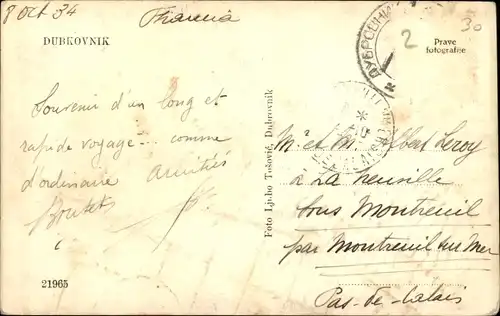 8 Oct 34
Francia
2
30
DUBROVNIK
Prave
fotografije
Souvenir d'un long et
rapide voyage ... comme
d'ordinaire Amitiés
Boutet
Foto Ljubo Tošović, Dubrovnik
Mr et Me Albert Leroy
à La Neuville
sous Montreuil
par Montreuil sur Mer
Pas-de-Calais
21965